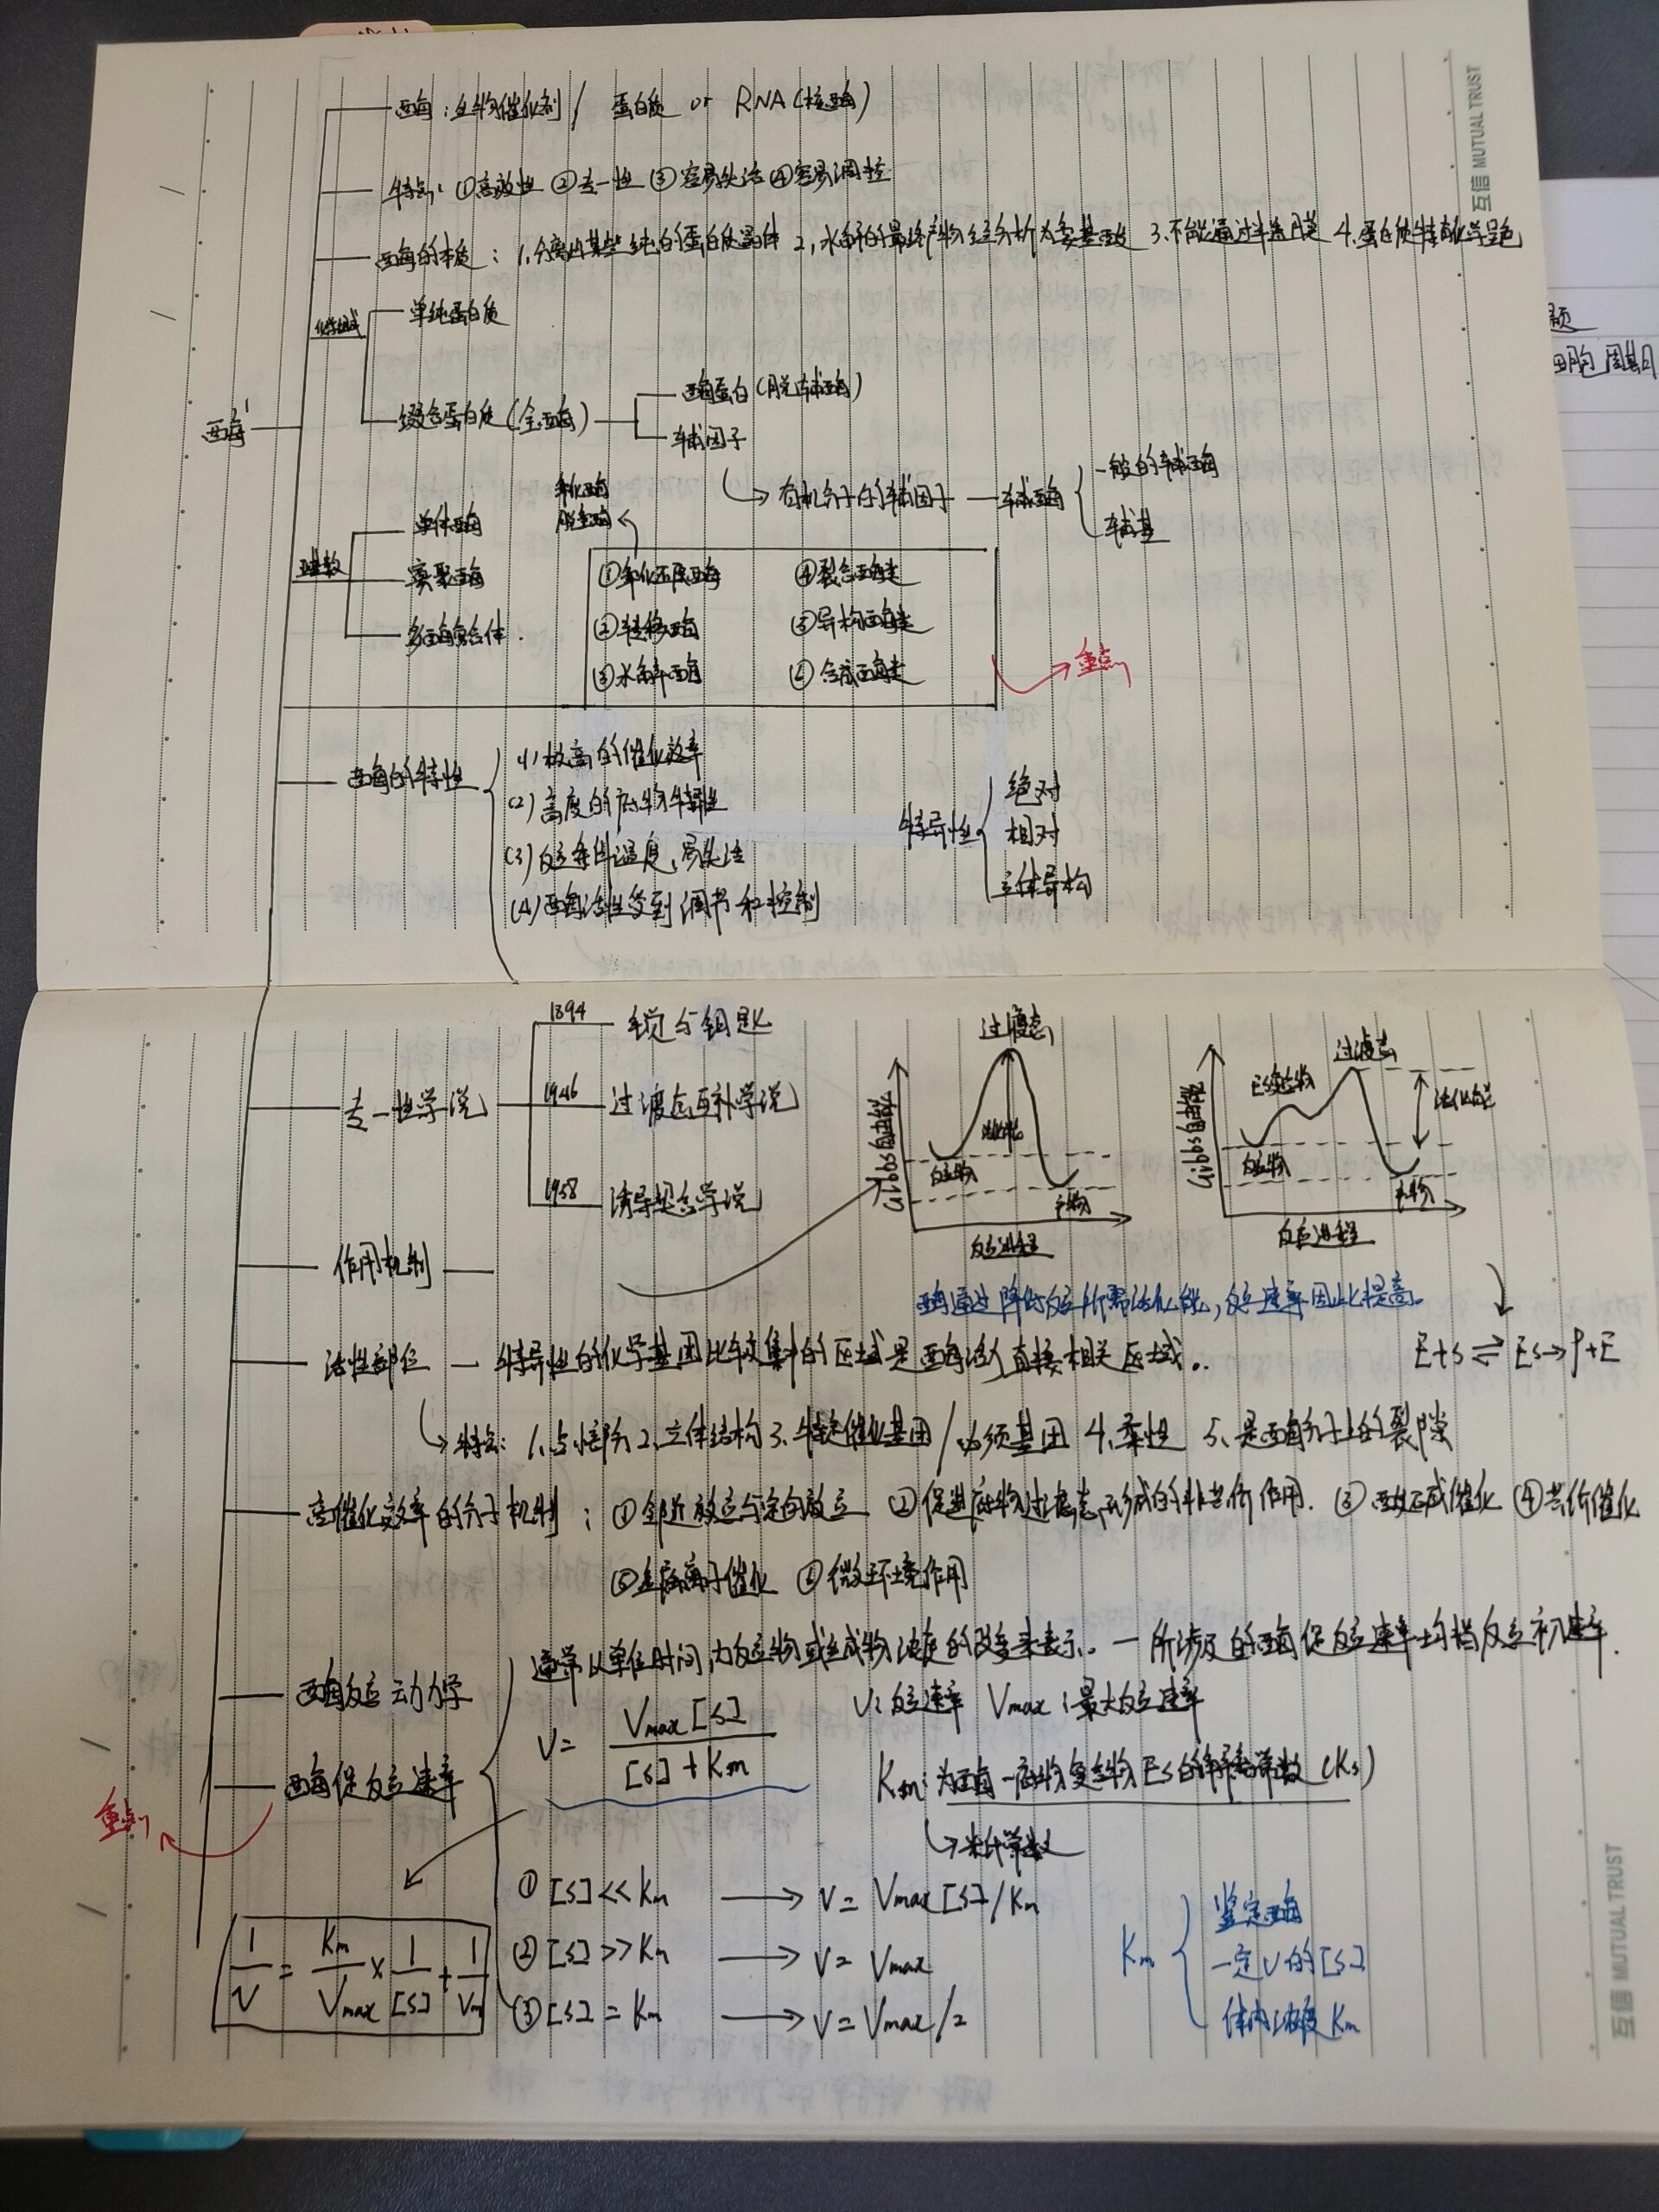 互信 MUTUAL TRUST
酶:生物催化剂 / 蛋白质 or RNA(核酶)
特点:①高效性 ②专一性 ③容易失活 ④容易调控
酶的本质:1.分离出某些纯的蛋白质晶体 2.水解的最终产物经分析为氨基酸 3.不能通过半透膜 4.蛋白质特有化学呈色
题
细胞 周期
化学组成
单纯蛋白质
缀合蛋白质(全酶)
酶蛋白(脱辅酶)
辅因子
酶
有机分子的辅因子 — 辅酶
一般的辅酶
辅基
亚基数
单体酶
寡聚酶
多酶复合体
氧化酶
脱氢酶
①氧化还原酶 ④裂合酶类
②转移酶 ⑤异构酶类
③水解酶 ⑥合成酶类
重点
酶的特性
(1)极高的催化效率
(2)高度的底物特异性
(3)反应条件温度,易失活
(4)酶活性受到调节和控制
特异性
绝对
相对
立体异构
专一性学说
1894 锁与钥匙
1946 过渡态互补学说
1958 诱导契合学说
Gibbs自由能
过渡态
活化能
反应物
产物
反应进程
Gibbs自由能
ES复合物
过渡态
活化能
反应物
产物
反应进程
作用机制
酶通过降低反应所需活化能,反应速率因此提高。
E+S⇌ES→P+E
活性部位 — 特异性的化学基团比较集中的区域是酶活力直接相关区域.
特点:1.占小部分 2.立体结构 3.特定催化基团/必须基团 4.柔性 5.是酶分子上的裂隙
高催化效率的分子机制:①邻近效应与定向效应 ②促进底物过渡态形成的非共价作用. ③酸碱催化 ④共价催化
⑤金属离子催化 ⑥微环境作用
酶反应动力学
通常以单位时间内反应物或生成物浓度的改变来表示。— 所涉及的酶促反应速率均指反应初速率.
酶促反应速率
重点
V= Vmax[S] / [S]+Km
V:反应速率 Vmax:最大反应速率
Km:为酶—底物复合物ES的解离常数(Ks)
米氏常数
①[S]<<Km → V=Vmax[S]/Km
②[S]>>Km → V=Vmax
③[S]=Km → V=Vmax/2
1/V = Km/Vmax × 1/[S] + 1/Vm
Km
鉴定酶
一定V的[S]
体内浓度Km
互信 MUTUAL TRUST